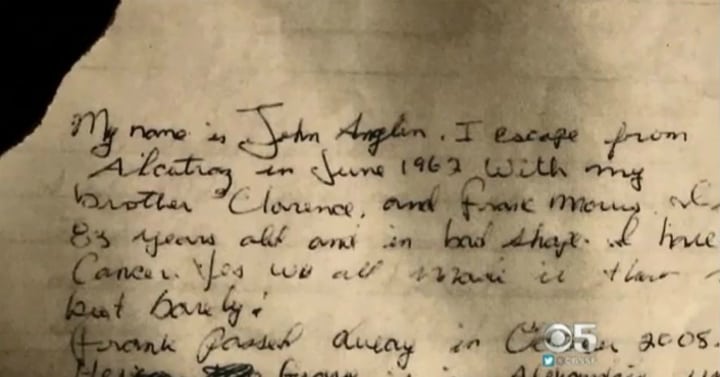 My name is John Anglin. I escape from
Alcatraz in June 1962 With my
brother Clarence, and Frank Morris. I
83 years old and in bad shape. I have
Cancer. Yes we all made it that
but barely!
Frank Passed away in 2008.
CBS 5